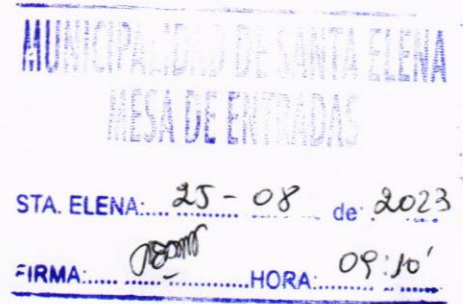 MUNICIPALIDAD DE SANTA ELENA
MESA DE ENTRADAS
STA. ELENA:.... 25 - 08 de 2023
FIRMA:.... HORA: 09:10'